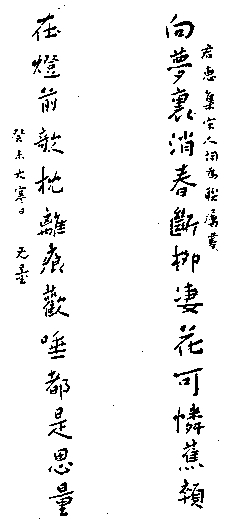 向夢裏消春斷柳淒花可憐蕉頛
君惠集宋人詞為聯屬書
在燈前欹枕離痕歡唾都是思量
癸未大寒日 无量